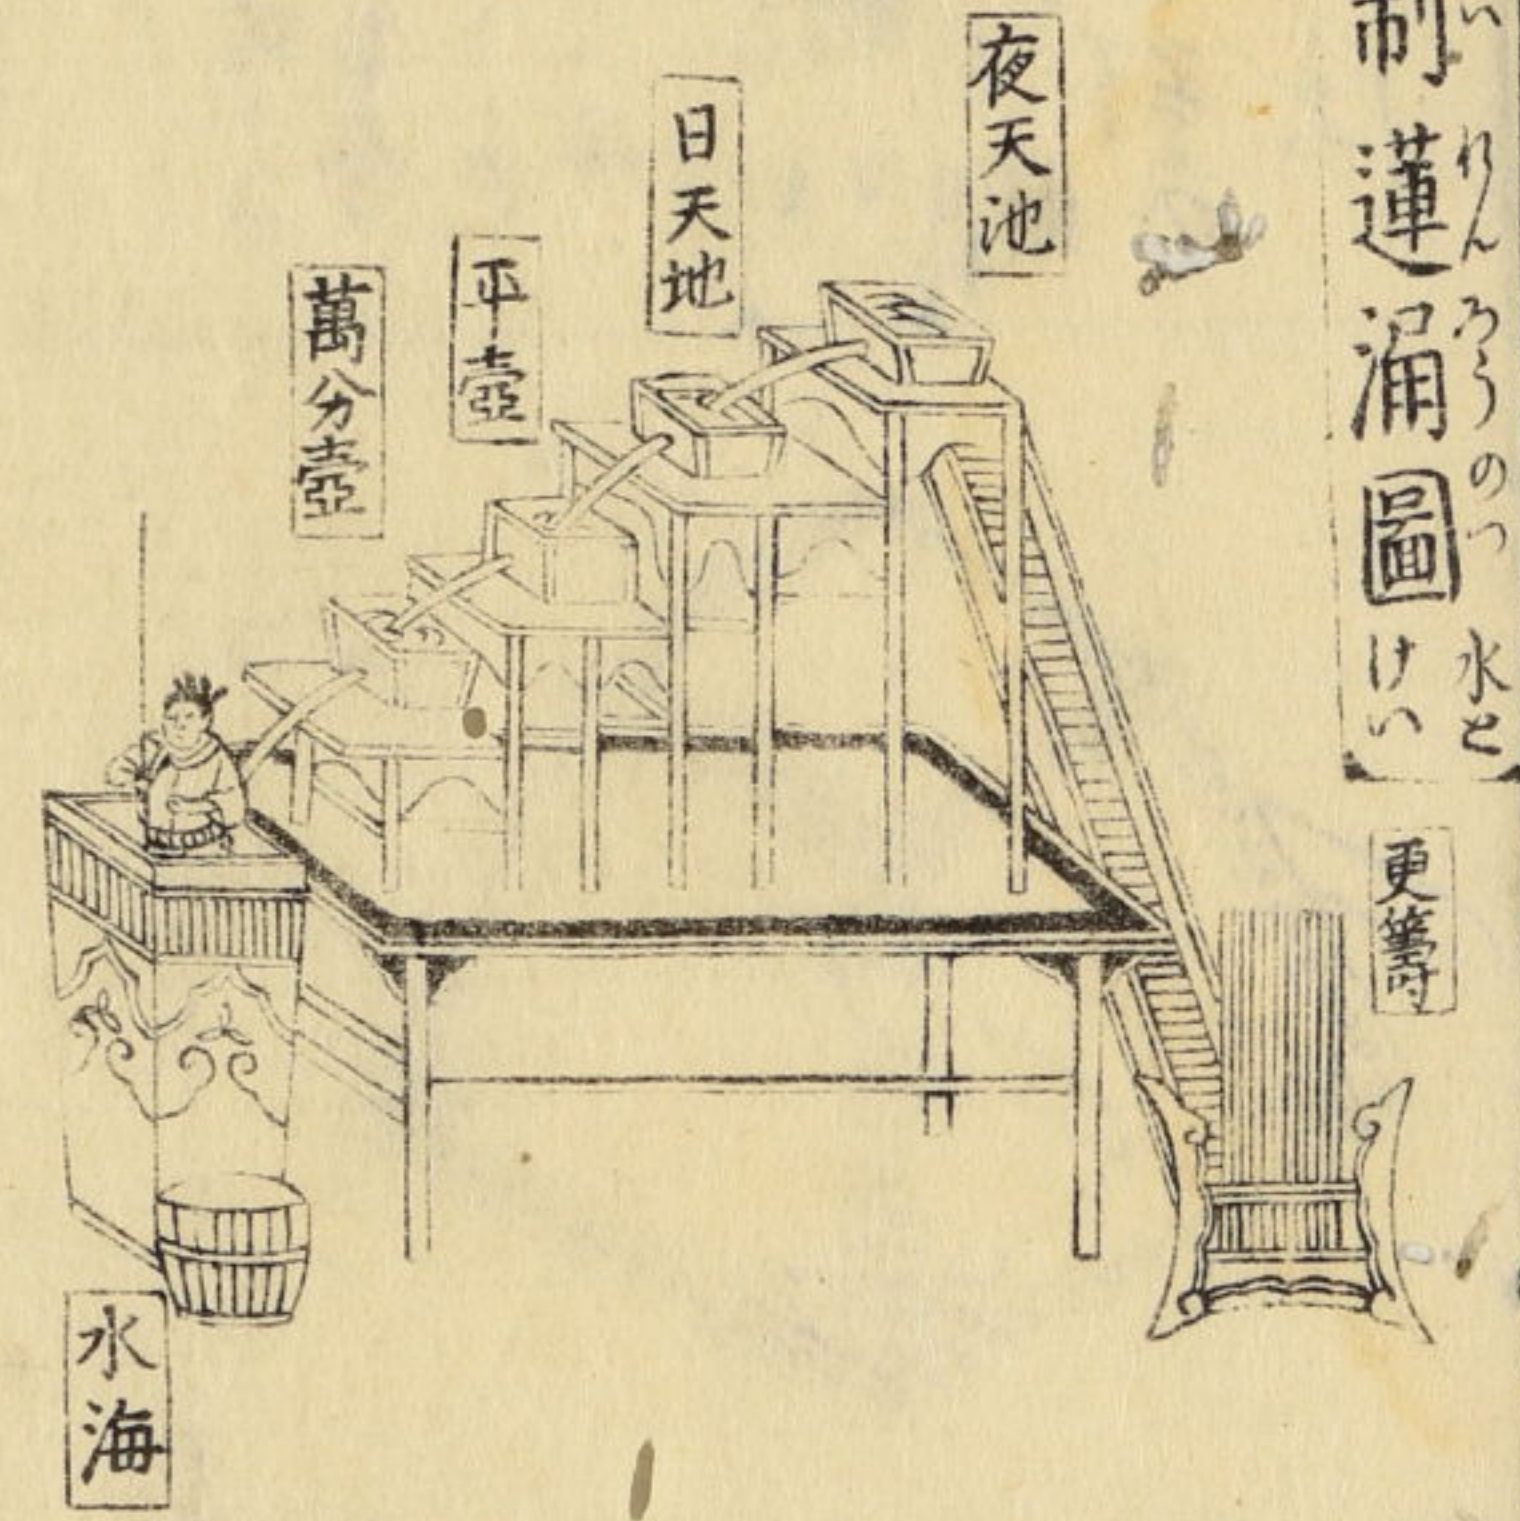 制蓮漏圖
いれんろうのつ
水と
けい
更籌
夜天池
日天地
平壺
萬分壺
水海